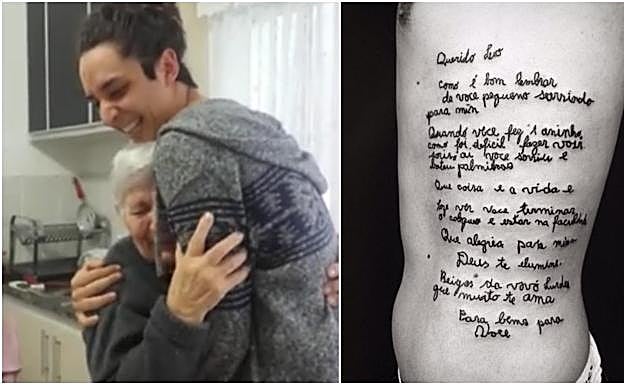 Querido Leo
como é bom lembrar
de voce pequeno sorrindo
para mim
Quando vоcе fez 1 aninho
como foi dificil fazer voce
ai voce sorriu e
bateu palminhas
Que coisa e a vida e
hoje ver voce terminar
o colegio e estar na faculdade
Que alegria para mim
Deus te ilumine.
Beijos da vovó Lurdes
que muito te ama
Para bems para
Voce